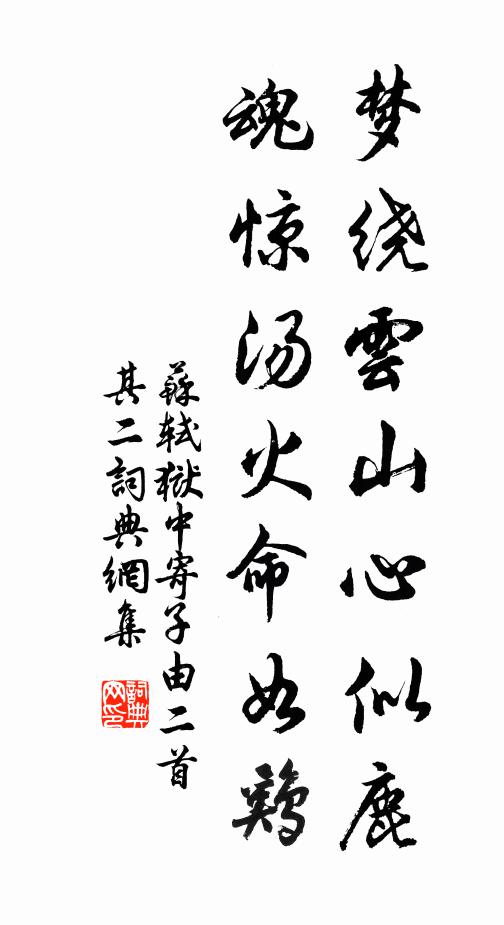 梦绕雲山心似鹿
魂惊汤火命如鷄
蘇軾獄中寄子由二首
其二詞典網集
詞典
网印